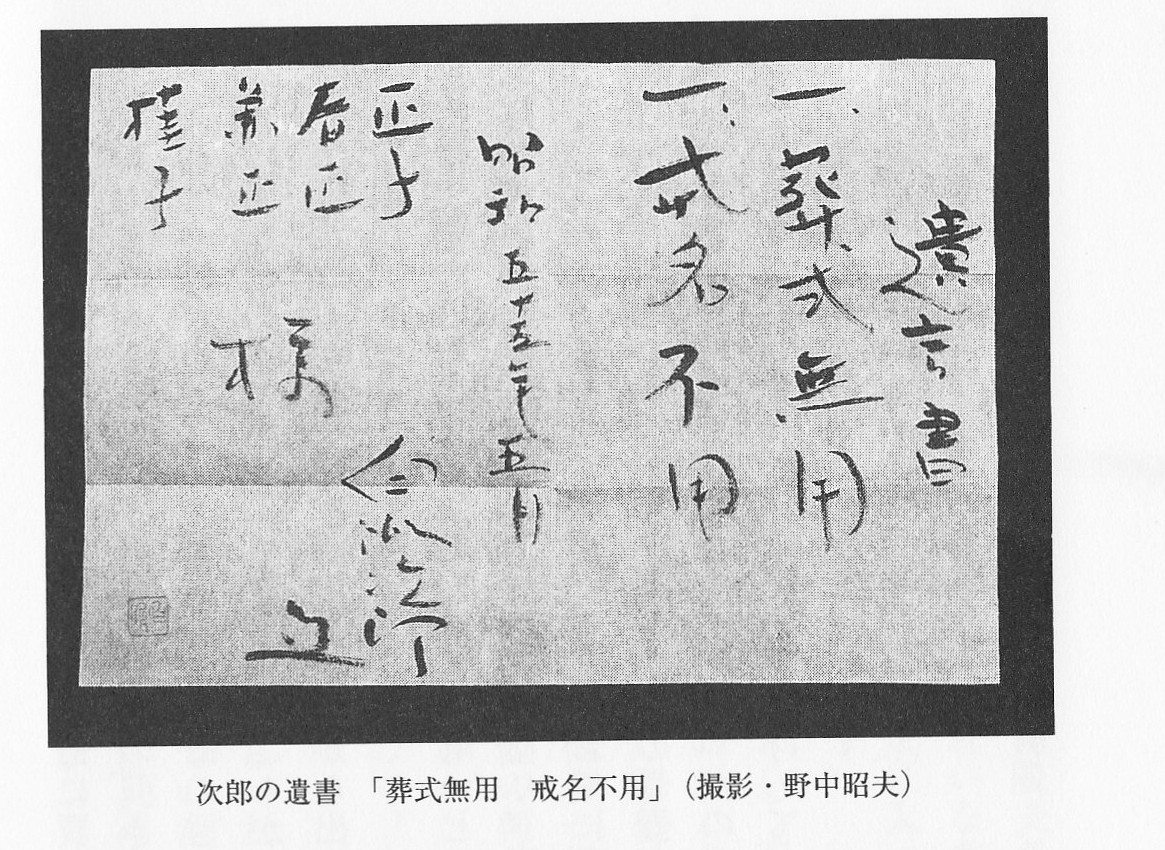 遺言書
一、葬式無用
一、戒名不用
昭和五十五年五月
正子
春正
兼正
桂子
様
白洲次郎
次郎の遺書　「葬式無用　戒名不用」（撮影・野中昭夫）